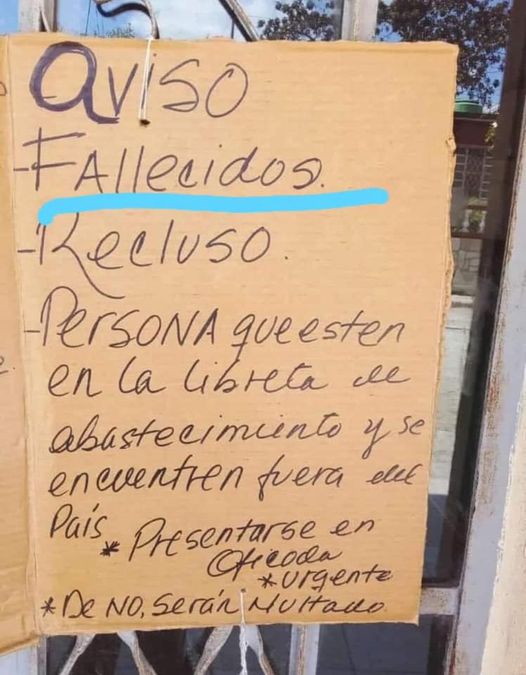 aviso
-Fallecidos.
-Recluso.
-Persona que esten
en la libreta de
abastecimiento y se
encuentren fuera del
País
* Presentarse en
Oficoda
* urgente
* De NO, Serán Multado